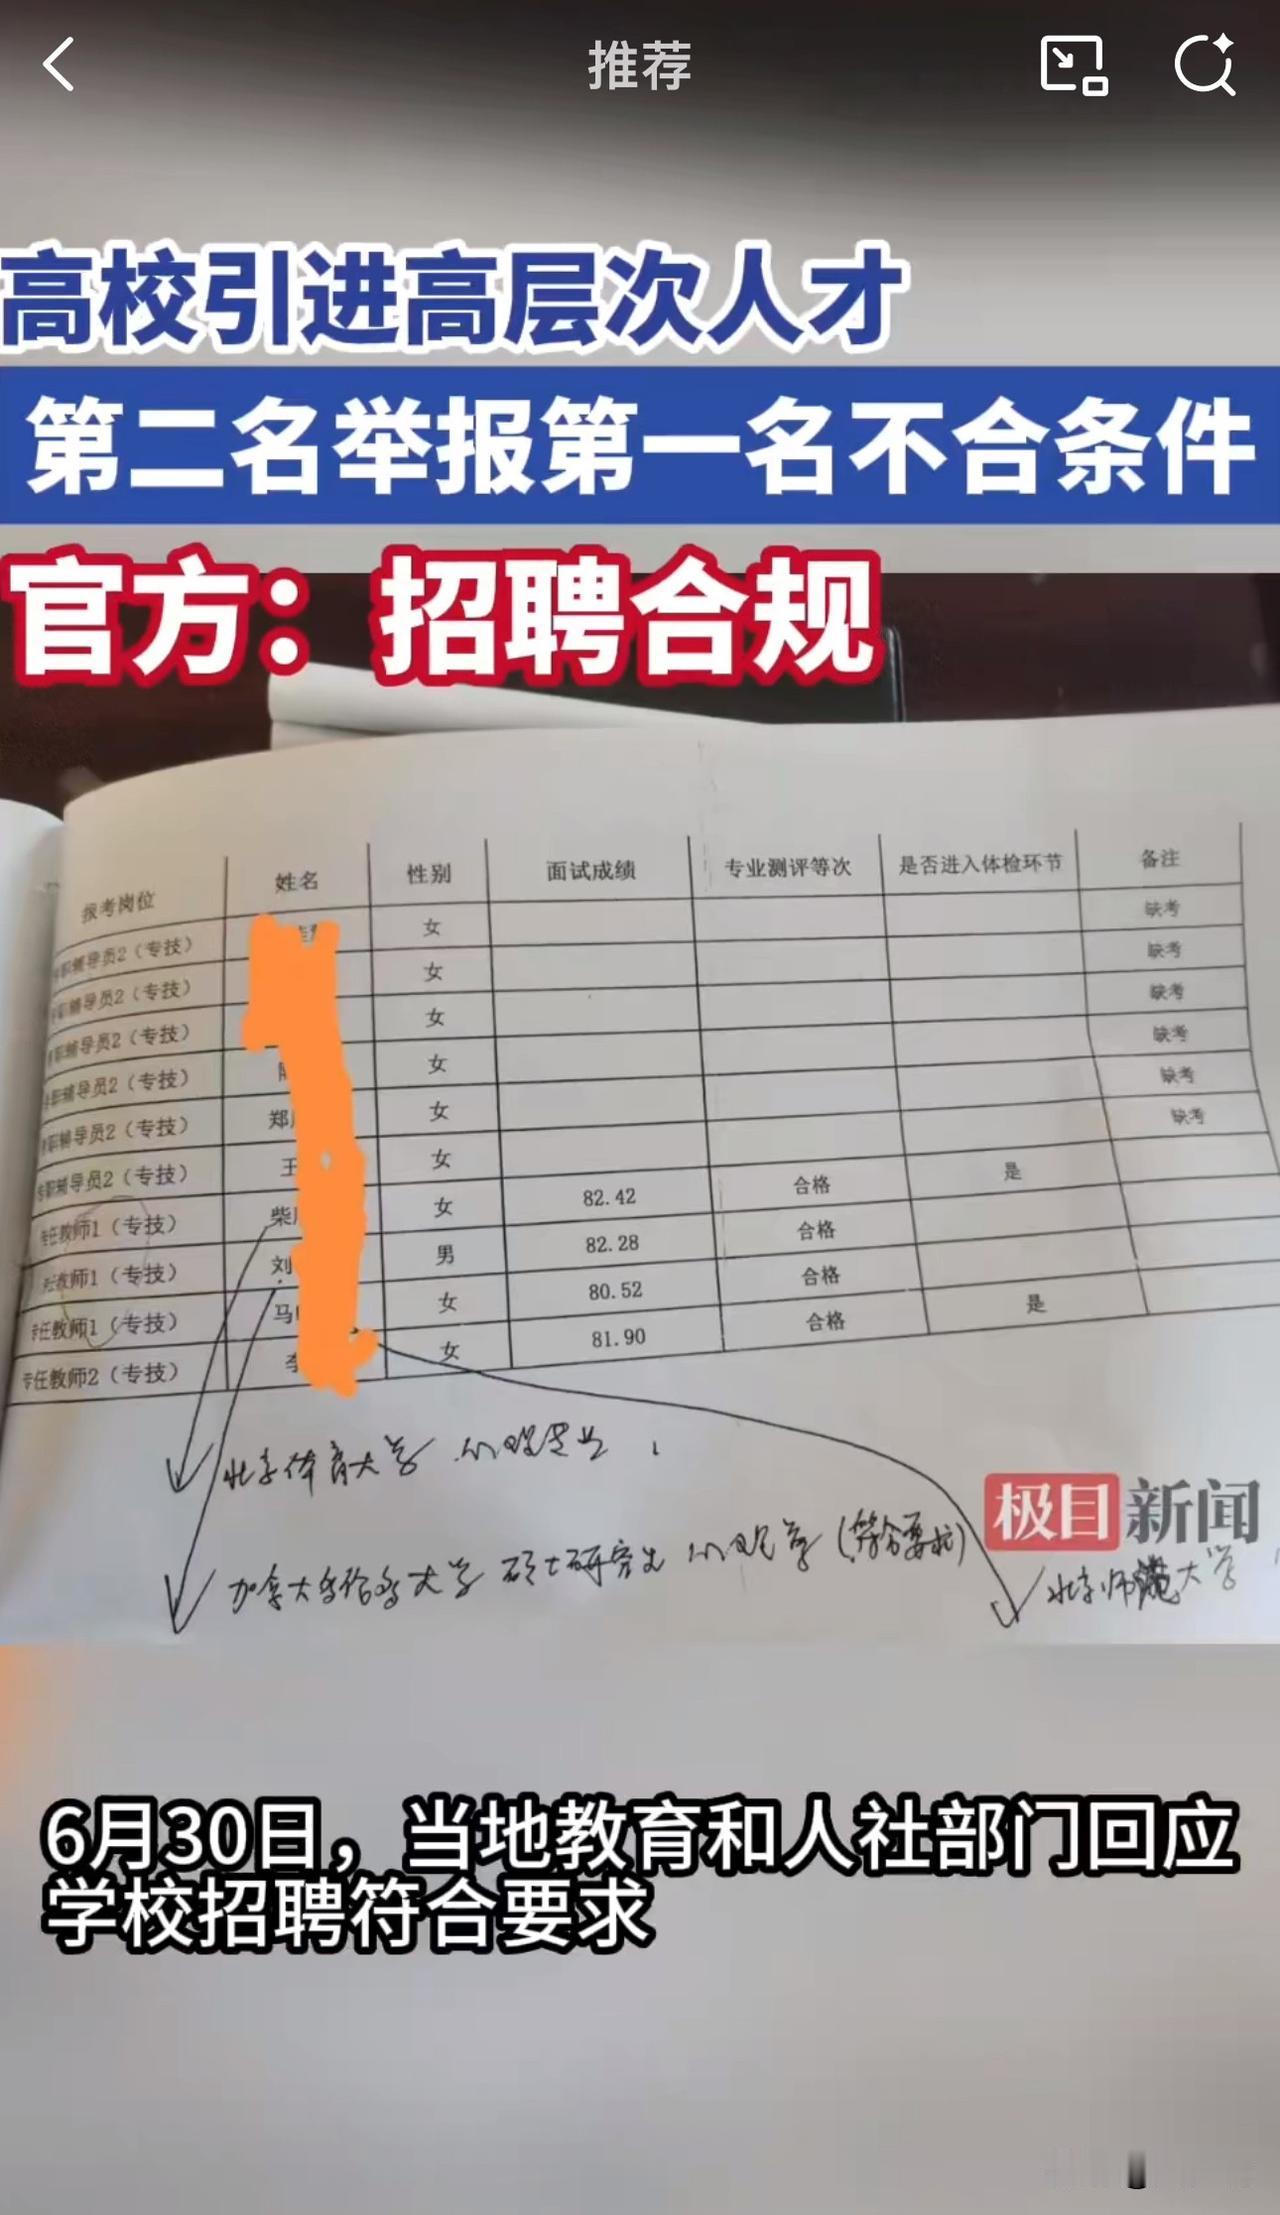 推荐
高校引进高层次人才
第二名举报第一名不合条件
官方：招聘合规
报考岗位 姓名 性别 面试成绩 专业测评等次 是否进入体检环节 备注
职辅导员2（专技） 女 缺考
职辅导员2（专技） 女 缺考
职辅导员2（专技） 女 缺考
职辅导员2（专技） 女 缺考
职辅导员2（专技） 郑 女 缺考
专职辅导员2（专技） 王 女 缺考
专任教师1（专技） 柴 女 82.42 合格 是
任教师1（专技） 刘 男 82.28 合格
专任教师1（专技） 马 女 80.52 合格
专任教师2（专技） 李 女 81.90 合格 是
北京体育大学
加拿大 大学 硕士研究生 （符合要求）
北京师范大学
极目新闻
6月30日，当地教育和人社部门回应
学校招聘符合要求